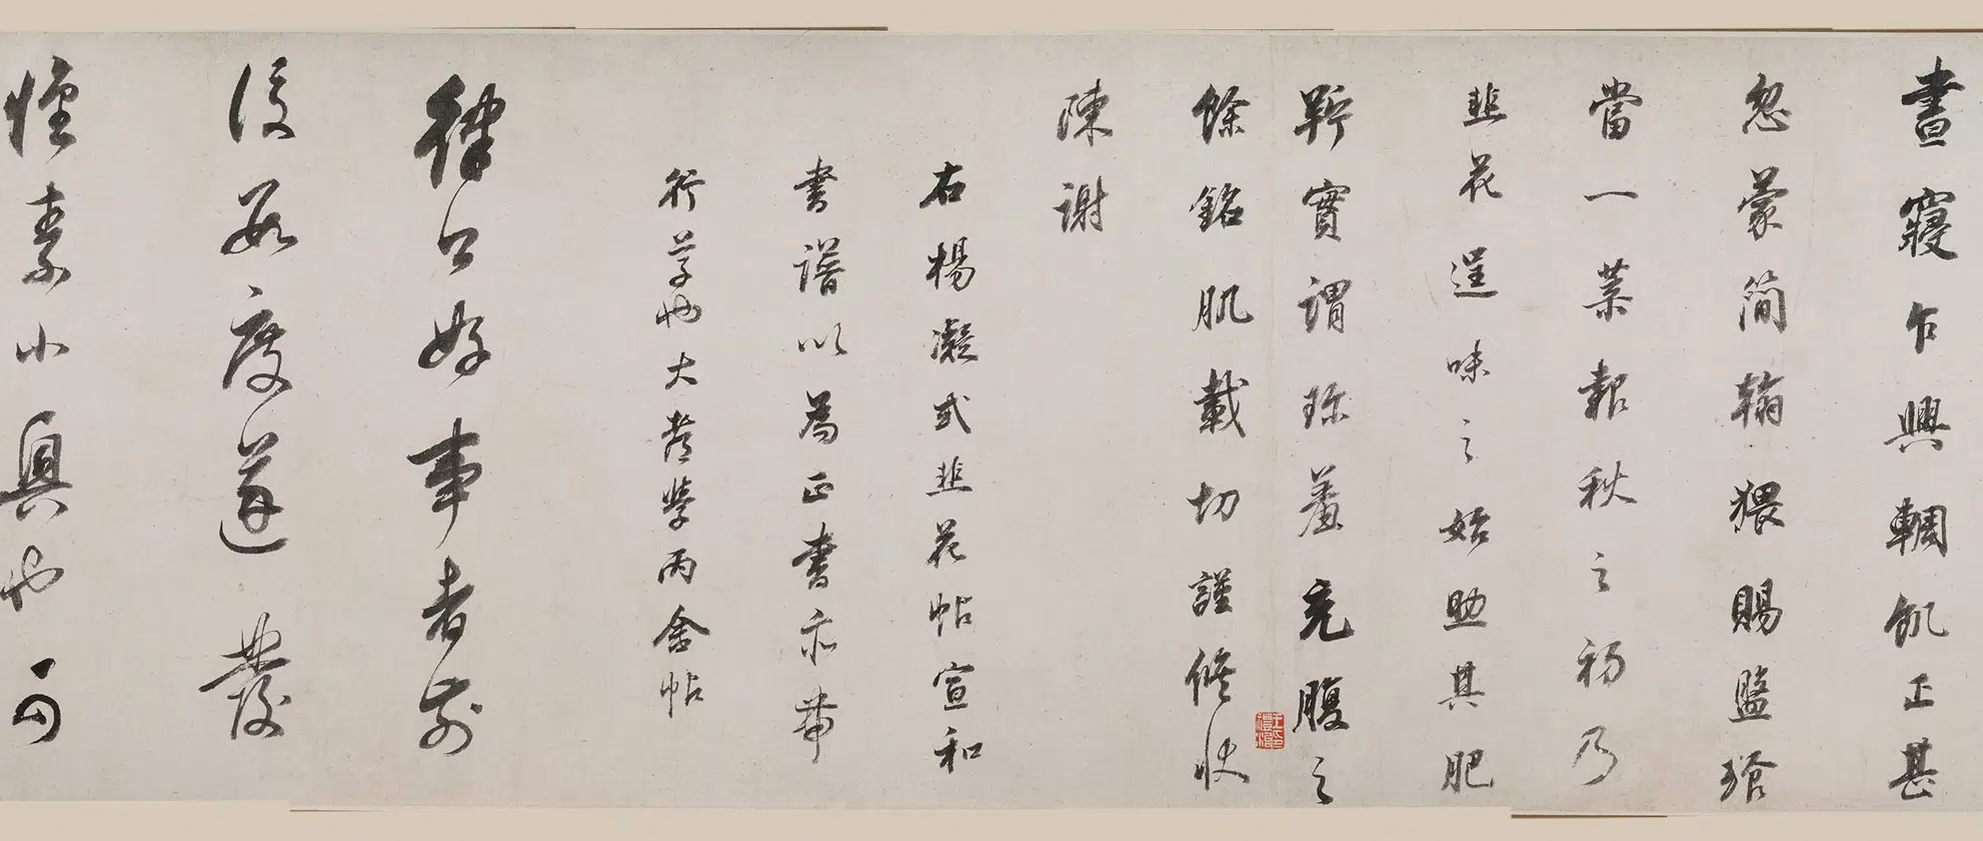 晝寢乍興輖飢正甚
忽蒙簡翰猥賜盤飧
當一葉報秋之初乃
韭花逞味之始助其肥
羜實謂珍羞充腹之
餘銘肌載切謹修狀
陳謝
右楊凝式韭花帖宣和
書譜以為正書亦帶
行草也大都學丙舍帖
律公好事者前
後數度遂發
懷素小興也可